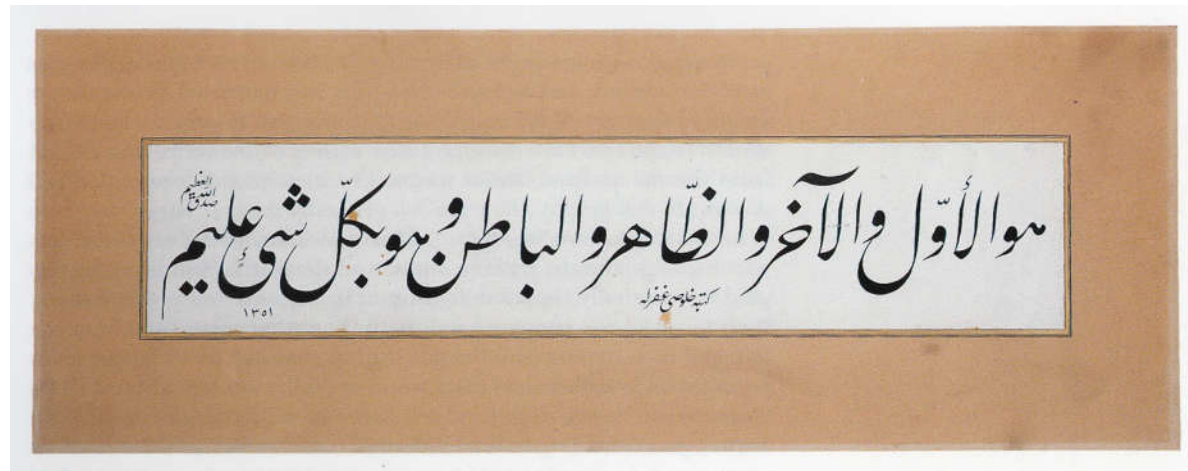 هو الأوّل والآخر والظّاهر والباطن وهو بكلّ شئ عليم
صدق الله العظيم
كتبه خلوصي غفر له
١٣٥١